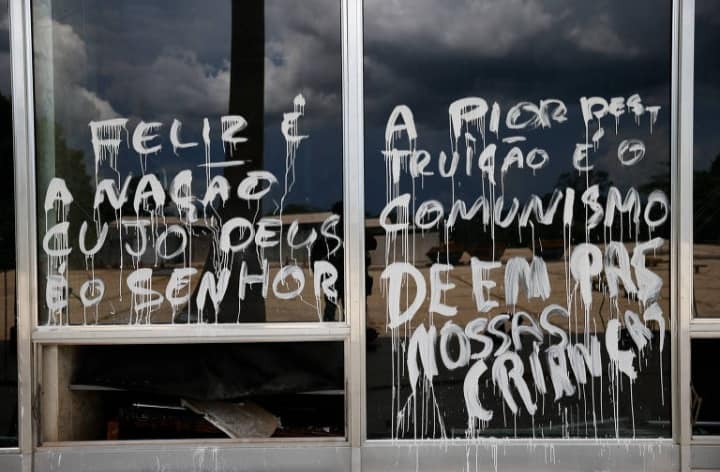 FELIZ É
A NAÇÃO
CUJO DEUS
É O SENHOR
A PIOR DES_
TRUIÇÃO É O
COMUNISMO
DEEM PAS
NOSSAS
CRIANÇAS